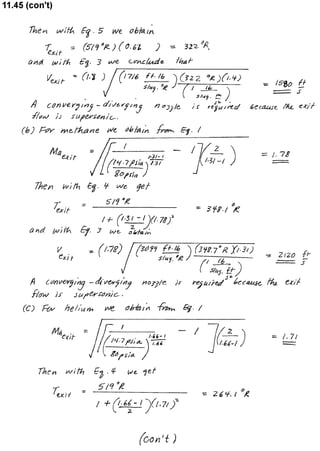 11.45 (con't)
Then with Eq. 5 we obtain
T_exit = (519 °R)(0.62 ) = 322 °R,
and with Eq. 3 we conclude that
V_exit = (1.8 ) √((1716 ft·lb / slug·°R)(322 °R)(1.4) / (1 lb / slug · ft/s²)) = 1580 ft/s
A converging-diverging nozzle is required because the exit
flow is supersonic.
(b) For methane we obtain from Eq. 1
Ma_exit = √([1 / (14.7 psia / 80 psia)^((1.31-1)/1.31) - 1](2 / 1.31-1)) = 1.78
Then with Eq. 4 we get
T_exit = 519 °R / (1 + (1.31-1 / 2)(1.78)²) = 348.1 °R
and with Eq. 3 we obtain
V_exit = (1.78) √((3099 ft·lb / slug·°R)(348.7 °R)(1.31) / (1 lb / slug · ft/s²)) = 2120 ft/s
A converging-diverging nozzle is required because the exit
flow is supersonic.
(c) For helium we obtain from Eq. 1
Ma_exit = √([1 / (14.7 psia / 80 psia)^((1.66-1)/1.66) - 1](2 / 1.66-1)) = 1.71
Then with Eq. 4 we get
T_exit = 519 °R / (1 + (1.66-1 / 2)(1.71)²) = 264.1 °R
(con't )